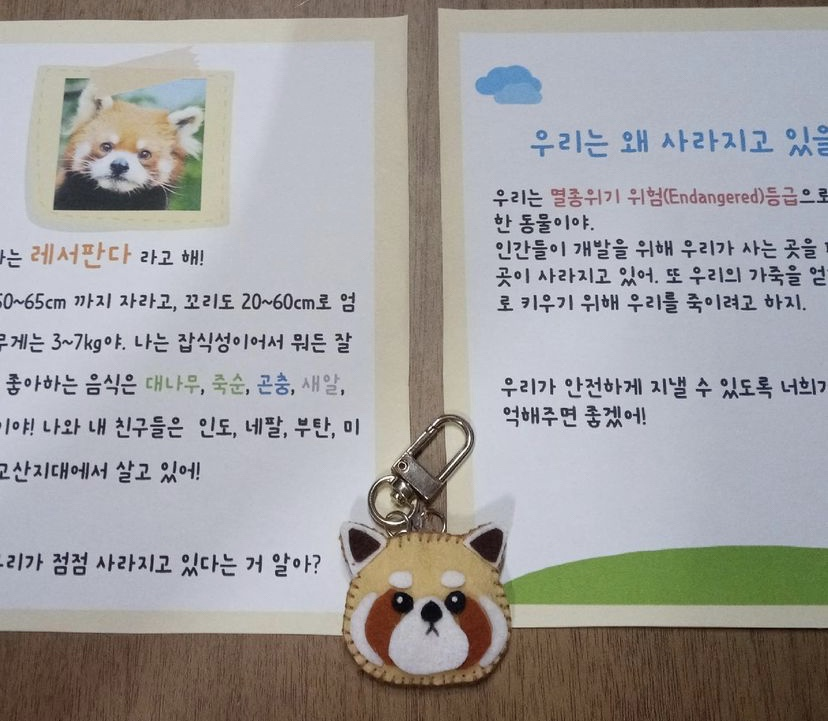 는 레서판다 라고 해!
50~65cm 까지 자라고, 꼬리도 20~60cm로 엄
무게는 3~7kg야. 나는 잡식성이어서 뭐든 잘
좋아하는 음식은 대나무, 죽순, 곤충, 새알,
이야! 나와 내 친구들은 인도, 네팔, 부탄, 미
고산지대에서 살고 있어!
우리가 점점 사라지고 있다는 거 알아?
우리는 왜 사라지고 있을
우리는 멸종위기 위험(Endangered)등급으로
한 동물이야.
인간들이 개발을 위해 우리가 사는 곳을
곳이 사라지고 있어. 또 우리의 가죽을 얻
로 키우기 위해 우리를 죽이려고 하지.
우리가 안전하게 지낼 수 있도록 너희가
억해주면 좋겠어!